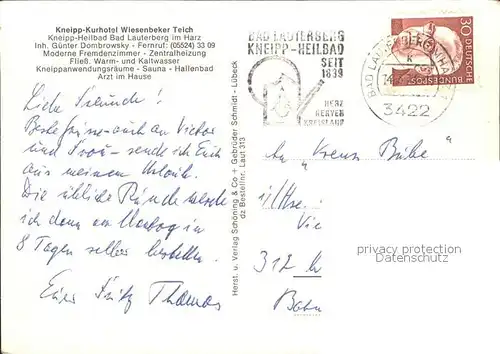 Kneipp-Kurhotel Wiesenbeker Teich
Kneipp-Heilbad Bad Lauterberg im Harz
Inh. Günter Dombrowsky - Fernruf: (05524) 33 09
Moderne Fremdenzimmer - Zentralheizung
Fließ. Warm- und Kaltwasser
Kneippanwendungsräume - Sauna - Hallenbad
Arzt im Hause
Liebe Freunde!
Beste Grüße - auch an Victor
und Frau - sende ich Euch
aus meinem Urlaub.
Die übliche Runde werde
ich dann am Montag in
8 Tagen selber bestellen.
Euer Fritz Thomas
Herst. u. Verlag Schöning & Co + Gebrüder Schmidt - Lübeck
dz Bestellnr. Laut 313
BAD LAUTERBERG
KNEIPP-HEILBAD
SEIT
1839
HERZ
NERVEN
KREISLAUF
BAD LAUTERBERG
3422
30
DEUTSCHE
BUNDESPOST
An "
312
privacy protection
Datenschutz